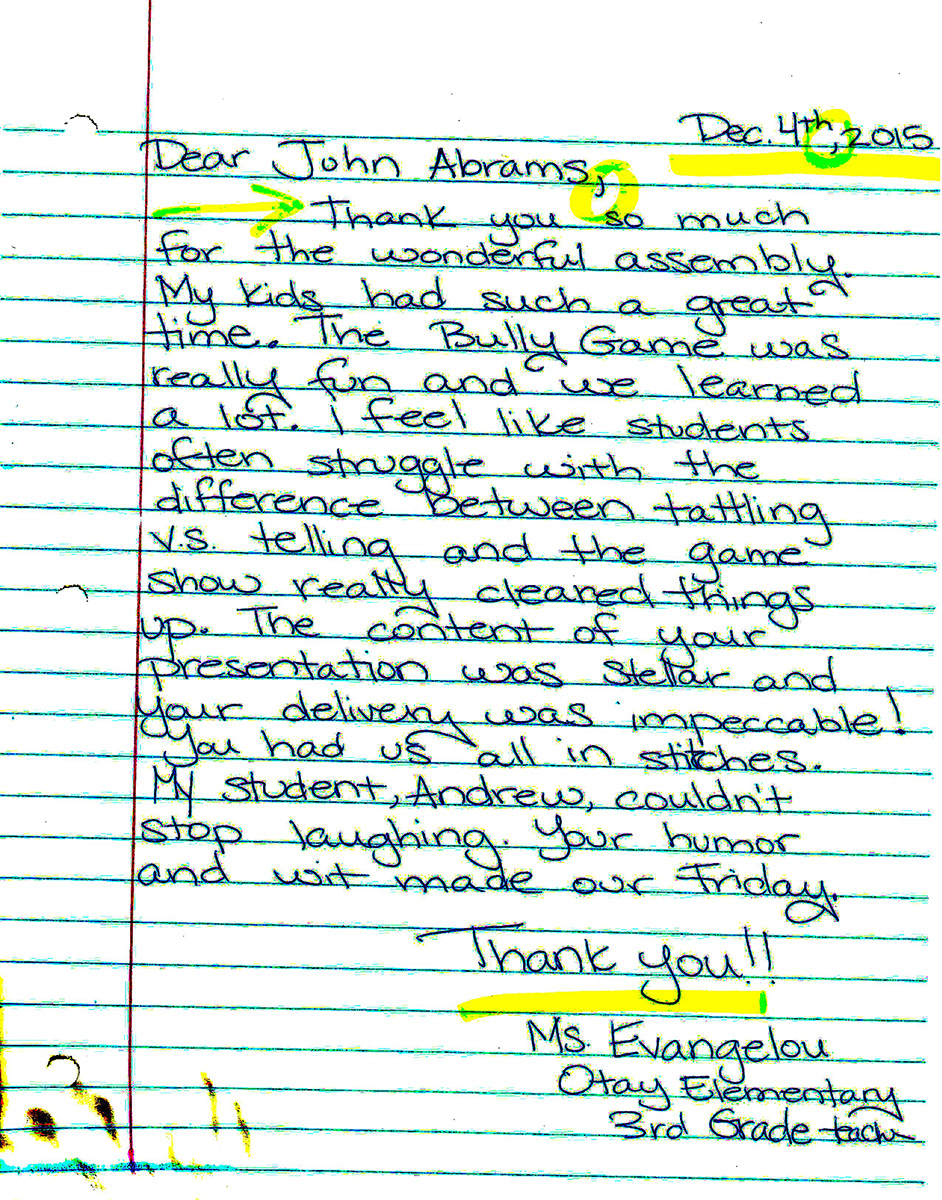 Dec. 4th, 2015
Dear John Abrams,
Thank you so much
for the wonderful assembly.
My kids had such a great
time. The Bully Game was
really fun and we learned
a lot. I feel like students
often struggle with the
difference between tattling
v.s. telling and the game
show really cleared things
up. The content of your
presentation was stellar and
your delivery was impeccable!
You had us all in stitches.
My student, Andrew, couldn't
stop laughing. Your humor
and wit made our Friday.
Thank you!!
Ms. Evangelou
Otay Elementary
3rd Grade teacher